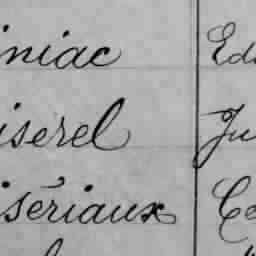 iniac Ed
iserel Ju
isériaux Ce